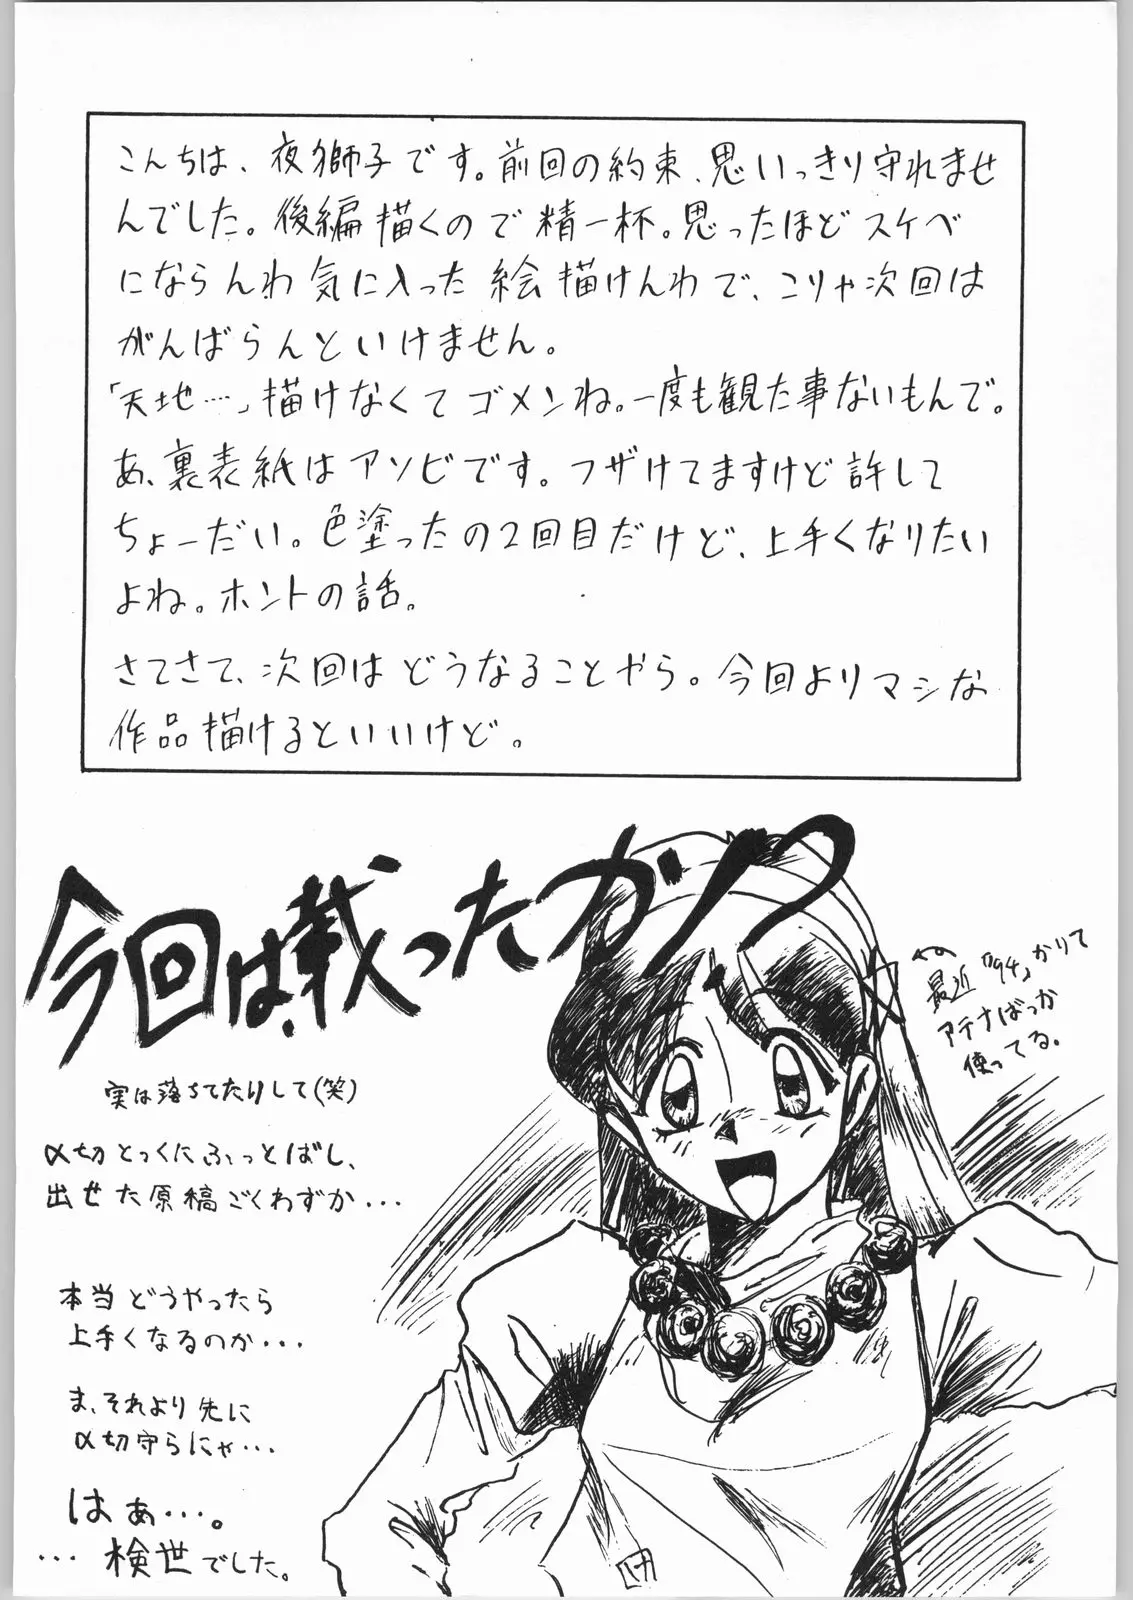 こんちは、夜獅子です。前回の約束、思いっきり守れませ
んでした。後編描くので精一杯。思ったほどスケベ
にならんわ気に入った絵描けんわで、こりゃ次回は
がんばらんといけません。
「天地…」描けなくてゴメンね。一度も観た事ないもんで。
あ、裏表紙はアソビです。フザけてますけど許して
ちょーだい。色塗ったの2回目だけど、上手くなりたい
よね。ホントの話。
さてさて、次回はどうなることやら。今回よりマシな
作品描けるといいけど。
今回は、載ったかソ?
最近「'94」かりて
アテナばっか
使ってる。
実は落ちてたりして(笑)
〆切とっくにふっとばし、
出せた原稿ごくわずか・・・
本当どうやったら
上手くなるのか・・・
ま、それより先に
〆切守らにゃ・・・
はぁ・・・。
・・・検世でした。